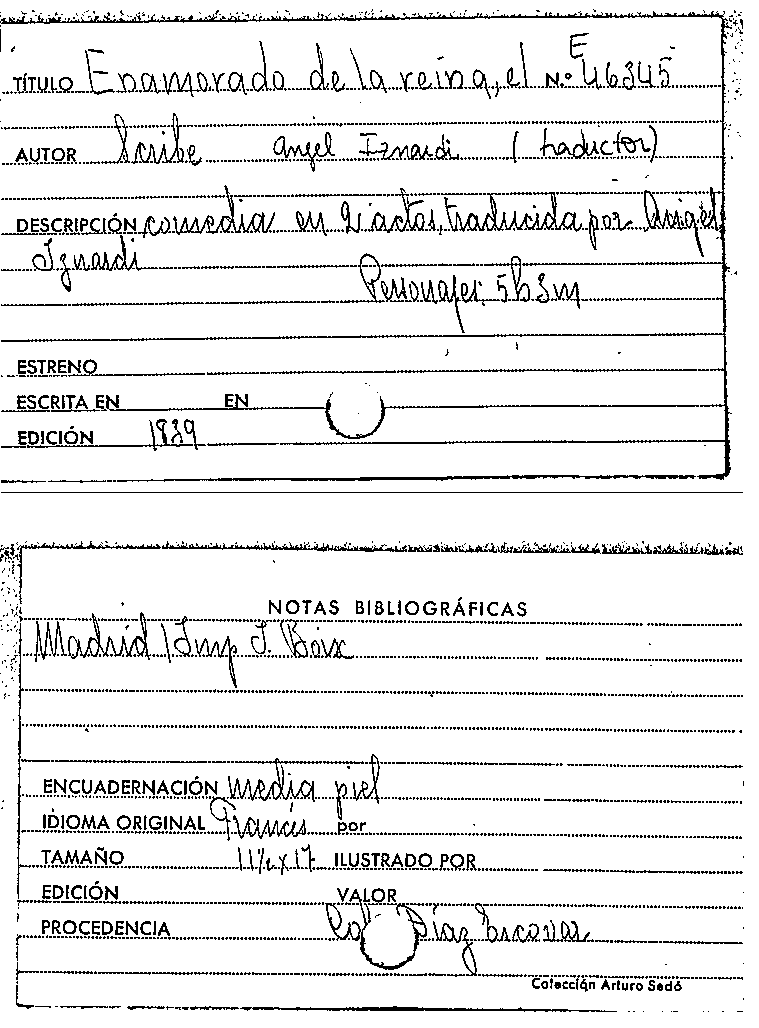 E
TÍTULO Enamorado de la reina, el N.º 46345
AUTOR Scribe Angel Iznardi (traductor)
DESCRIPCIÓN comedia en 2 actos, traducida por Angel
Iznardi
Personajes: 5h 3m
ESTRENO
ESCRITA EN EN
EDICIÓN 1839
NOTAS BIBLIOGRÁFICAS
Madrid / Imp I. Boix
ENCUADERNACIÓN media piel
IDIOMA ORIGINAL Francés por
TAMAÑO 11½ x 17 ILUSTRADO POR
EDICIÓN VALOR
PROCEDENCIA Díaz Escovar
Colección Arturo Sedó